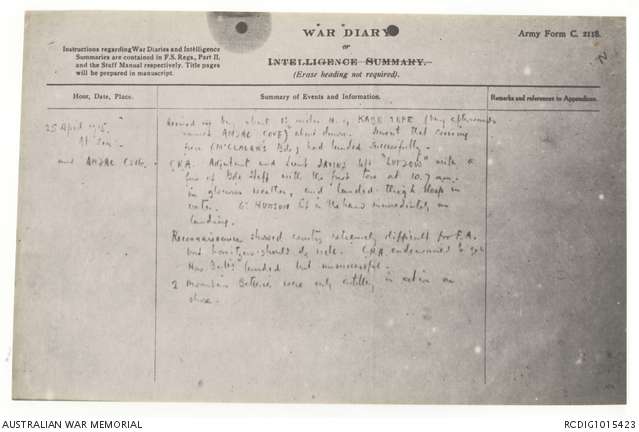 WAR DIARY
or
INTELLIGENCE SUMMARY.
(Erase heading not required).
Army Form C. 2118.
Instructions regarding War Diaries and Intelligence
Summaries are contained in F.S. Regs., Part II.
and the Staff Manual respectively. Title pages
will be prepared in manuscript.
Hour, Date, Place.
Summary of Events and Information.
Remarks and references to Appendices.
25 April 1915.
At Sea
and ANZAC Cove.
Arrived in bay about 1½ miles N. of KABE TEPE (bay afterwards
named ANZAC COVE) about dawn. that covering
force (McCLAGAN'S Bde) had landed successfully.
CRA. Adjutant and Lieut left "LUTZOW" with a
few of Bde Staff with the first tow at 10.7 am.
in glorious weather, and landed thigh deep in
water. Gr HUDSON hit in the hand immediately on
landing.
Reconnaissance showed country extremely difficult for F.A.
but howitzers should do well. CRA endeavoured to get
How Batts landed but unsuccessful.
2 Mountain Batteries were only artillery in action on
shore.
AUSTRALIAN WAR MEMORIAL
RCDIG1015423